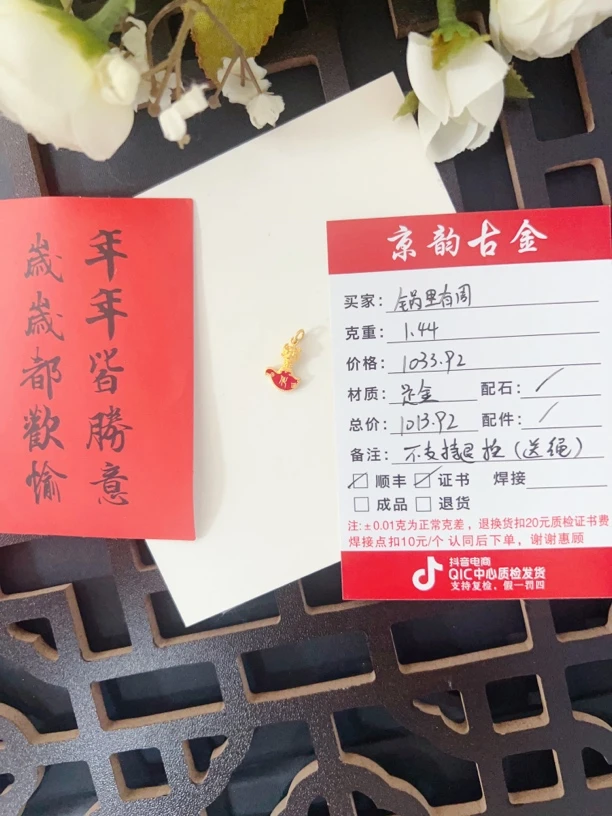 年年皆勝意
歲歲都歡愉
京韵古金
买家：锅里有周
克重：1.44
价格：1033.92
材质：足金 配石：/
总价：1013.92 配件：/
备注：不支持退换（送绳）
顺丰 证书 焊接
成品 退货
注:±0.01克为正常克差，退换货扣20元质检证书费
焊接点扣10元/个 认同后下单，谢谢惠顾
抖音电商
QIC中心质检发货
支持复检，假一罚四